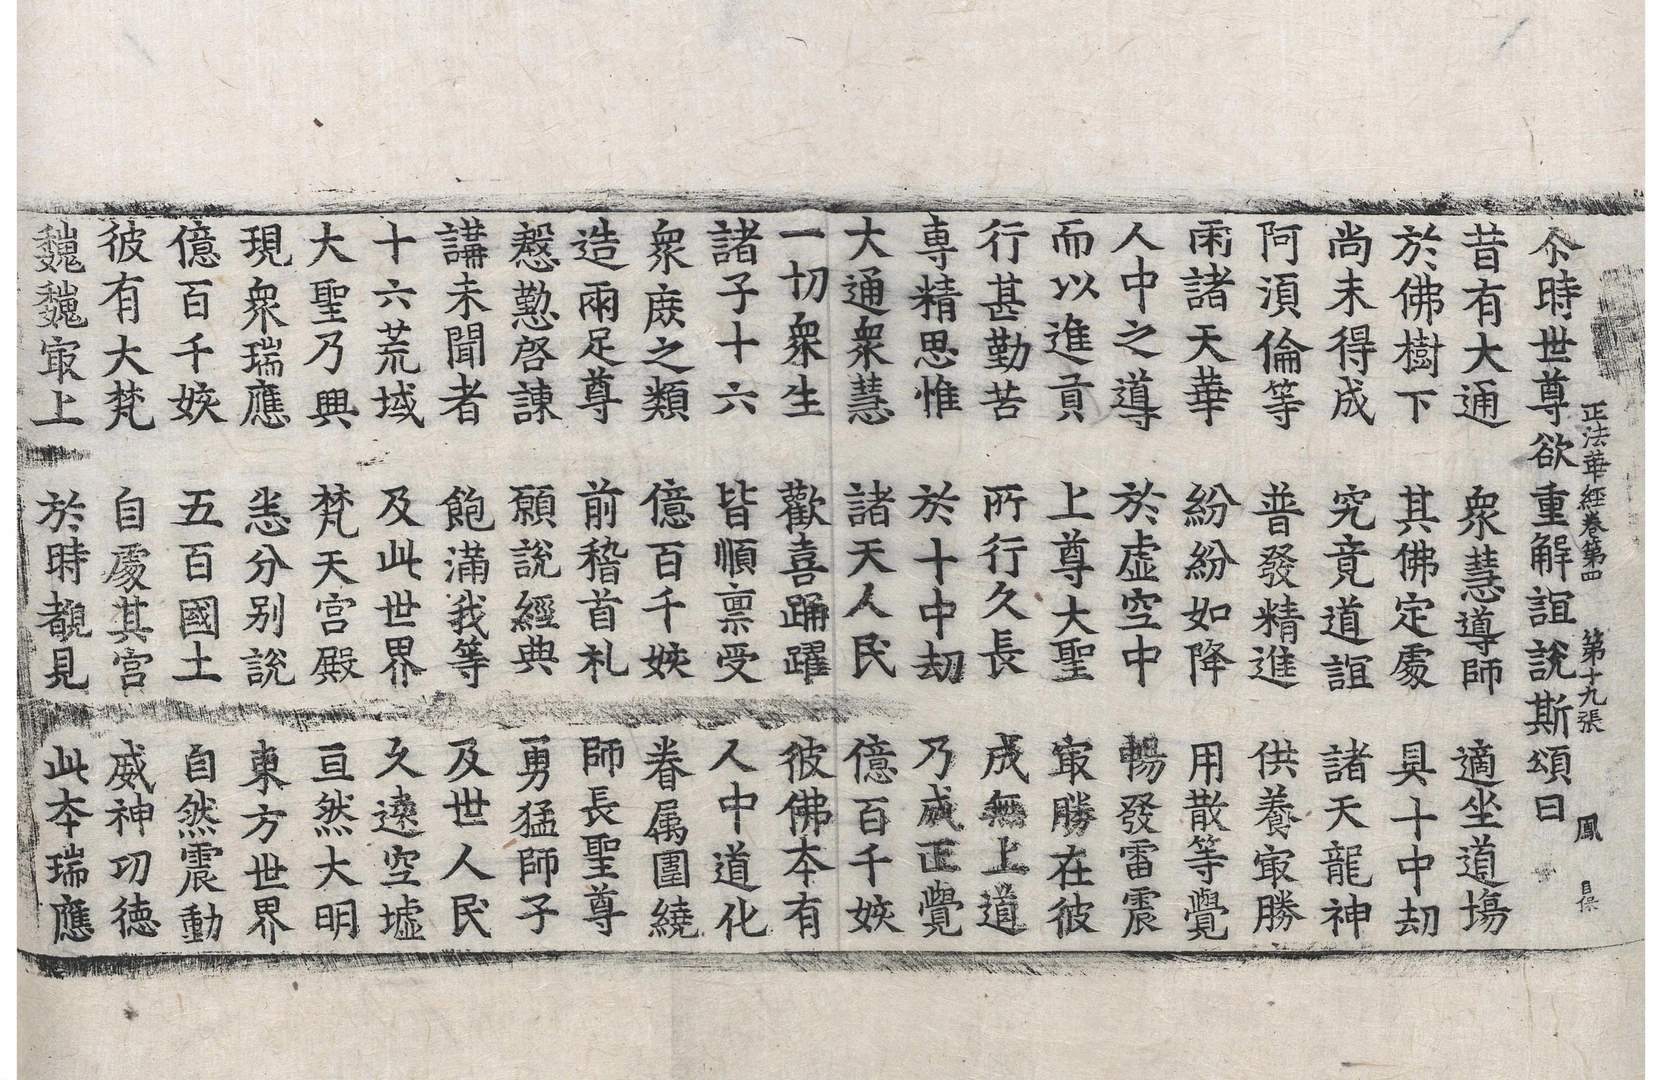 正法華經卷第四 第十九張 鳳
尒時世尊欲重解誼說斯頌曰
昔有大通 衆慧導師 適坐道塲
於佛樹下 其佛定處 具十中劫
尚未得成 究竟道誼 諸天龍神
阿湏倫等 普發精進 供養㝡勝
雨諸天華 紛紛如降 用散等覺
人中之導 於虛空中 暢發雷震
而以進貢 上尊大聖 㝡勝在彼
行甚勤苦 所行久長 成無上道
專精思惟 於十中劫 乃成正覺
大通衆慧 諸天人民 億百千姟
一切衆生 歡喜踊躍 彼佛本有
諸子十六 皆順禀受 人中道化
衆庻之類 億百千姟 眷属圍繞
造兩足尊 前稽首礼 師長聖尊
慇懃啓諫 願說經典 勇猛師子
講未聞者 飽滿我等 及世人民
十六荒域 及此世界 久遠空墟
大聖乃興 梵天宮殿 亘然大明
現衆瑞應 恙分別說 東方世界
億百千姟 五百國土 自然震動
彼有大梵 自處其宮 威神功德
巍巍㝡上 於時覩見 此本瑞應